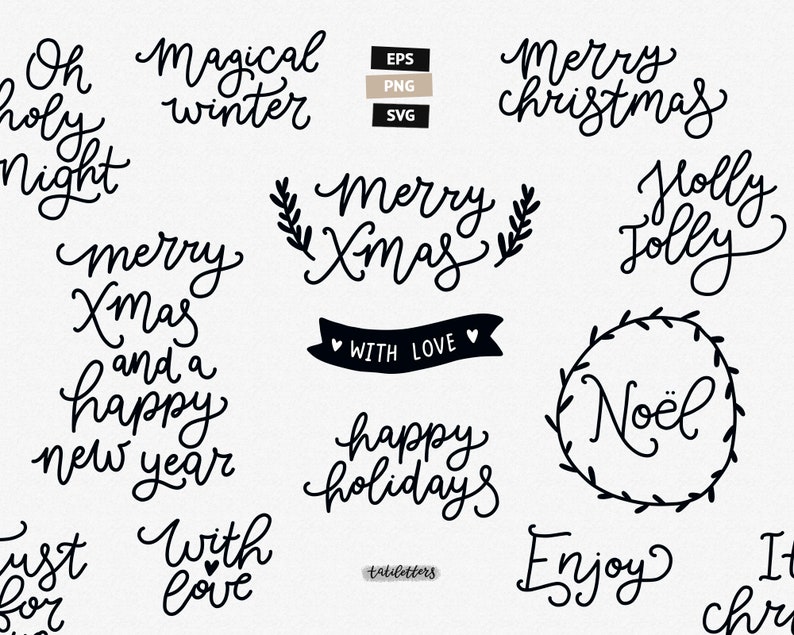 Oh
holy
Night
Magical
winter
EPS
PNG
SVG
Merry
christmas
Merry
Xmas
Holly
Jolly
merry
Xmas
and a
happy
new year
WITH LOVE
Noël
happy
holidays
Just
for
With
love
tatiletters
Enjoy